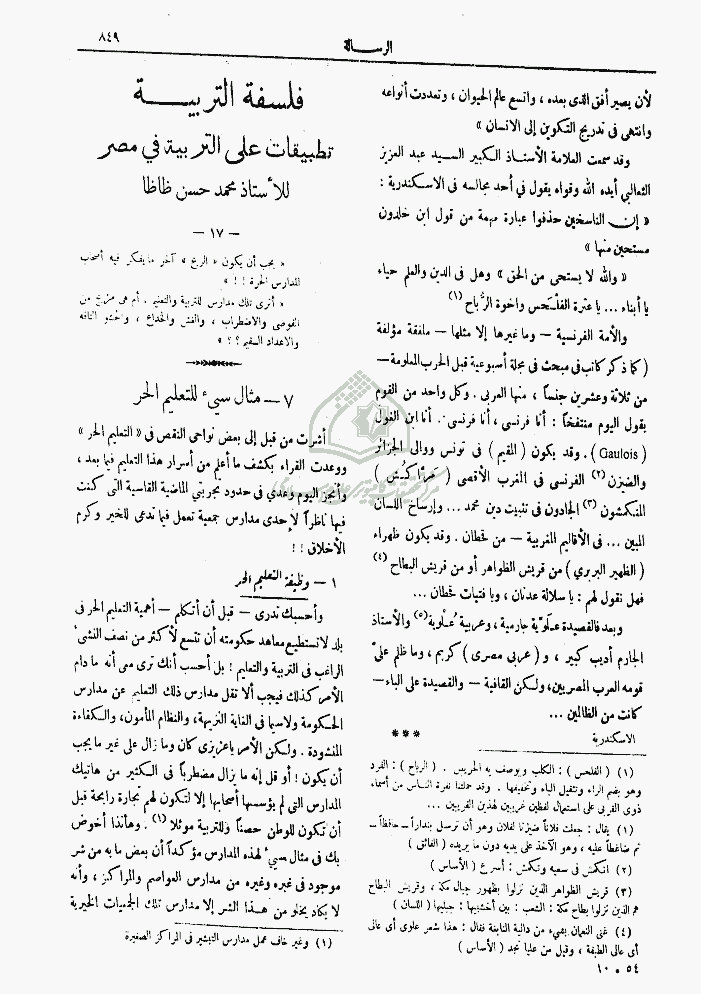 ٨٤٩
الرسالة
لأن يصير أفق الذى بعده ، واتسع عالم الحيوان ، وتعددت أنواعه
وانتهى فى تدريج التكوين إلى الانسان »
وقد سمعت العلامة الأستاذ الكبير السيد عبد العزيز
الثعالبي أيده الله وقواه يقول في أحد مجالسه فى الاسكندرية :
« إن الناسخين حذفوا عبارة مهمة من قول ابن خلدون
مستحين منها »
« والله لا يستحى من الحق » وهل فى الدين والعلم حياء
يا أبناء ... يا عترة الفلحس واخوة الرُّباح (١)
والأمة الفرنسية — وما غيرها إلا مثلها — ملفقة مؤلفة
( كما ذكر كاتب فى مبحث فى مجلة أسبوعية قبل الحرب المعلومة —
من ثلاثة وعشرين جنساً ، منها العربى . وكل واحد من القوم
يقول اليوم منتفخاً : أنا فرنسى ، أنا فرنسى . أنا ابن الغول
(Gaulois) . وقد يكون ( المقيم ) فى تونس ووالى الجزائر
والضيزن (٢) الفرنسى فى المغرب الأقصى
المنكمشون (٣) الجادون فى تثبيت دين محمد ... وإرساخ اللسان
المبين ... فى الأقاليم المغربية — من قحطان . وقد يكون ظهراء
( الظهير البربرى ) من قريش الظواهر أو من قريش البطاح (٤)
فهل نقول لهم : يا سلالة عدنان ، ويا فتيات قحطان ...
وبعد فالقصيدة عملّوية جارمية ، وعربية عُلوية (٥) والأستاذ
الجارم أديب كبير ، و ( عربى مصرى ) كريم ، وما ظلم علىّ
قومه العرب المصريين ، ولكن القافية — والقصيدة على الباء —
كانت من الظالمين ...
الاسكندرية
***
(١) ( الفلحس ) : الكلب ويوصف به الحريص . ( الرباح ) : القرد
وهو بضم الراء وتثقيل الباء وتخفيفها . وقد حملتنا نفرة الناس من أسماء
ذوى القربى على استعمال لفظين غريبين لهذين القريبين ...
(١) يقال : جعلت فلاناً ضيزناً لفلان وهو أن ترسل بنداراً — حافظاً —
ثم ضاغطاً عليه ، وهو الآخذ على يديه دون ما يريده ( الفائق )
(٢) انكمش فى سعيه وتكمش : أسرع ( الأساس )
(٣) قريش الظواهر الذين نزلوا بظهور جبال مكة ، وقريش البطاح
هم الذين نزلوا بطاح مكة : الشعب : بين أخشبيها : جبليها ( اللسان )
(٤) غنى النعمان بشىء من دالية النابغة فقال : هذا شعر علوى أى عالى
أى عالى الطبقة ، وقيل من عليا نجد ( الأساس )
٥٤ - ١٠
فلسفة التربية
تطبيقات على التربية في مصر
للأستاذ محمد حسن ظاظا
— ١٧ —
« يجب أن يكون « الربح » آخر ما يفكر فيه أصحاب
المدارس الحرة ! ! »
« أترى تلك مدارس للتربية والتعليم ، أم هى مزيج من
الفوضى والاضطراب ، والغش والخداع ، والحشو التافه
والاعداد السقيم ؟ ؟ »
٧ — مثال سيىء للتعليم الحر
أشرت من قبل إلى بعض نواحى النقص فى « التعليم الحر »
ووعدت القراء بكشف ما أعلم من أسرار هذا التعليم فيما بعد ،
وأنجز اليوم وعدي فى حدود تجربتي الماضية القاسية التى كنت
فيها ناظراً لإحدى مدارس جمعية تعمل فيما تدعى للخير وكرم
الأخلاق ! !
١ — وظيفة التعليم الحر
وأحسبك تدرى — قبل أن أتكلم — أهمية التعليم الحر فى
بلد لا تستطيع معاهد حكومته أن تتسع لأكثر من نصف النشىء
الراغب فى التربية والتعليم ! بل أحسب أنك ترى معى أنه ما دام
الأمر كذلك فيجب ألا تقل مدارس ذلك التعليم عن مدارس
الحكومة ولا سيما فى الغاية النزيهة ، والنظام المأمون ، والكفاءة
المنشودة . ولكن الأمر يا عزيزى كان وما زال على غير ما يجب
أن يكون ! أو قل إنه ما يزال مضطرباً فى الكثير من هاتيك
المدارس التى لم يؤسسها أصحابها إلا لتكون لهم تجارة رابحة قبل
أن تكون للوطن حصناً وللتربية موئلا (١) . وهأنذا أخوض
بك فى مثال سىء لهذه المدارس مؤكداً أن بعض ما به من شر
موجود فى غيره وغيره من مدارس العواصم والمراكز ، وأنه
لا يكاد يخلو من هذا الشر إلا مدارس تلك الجمعيات الخيرية
(١) وغير خاف عمل مدارس التبشير فى المراكز الصغيرة